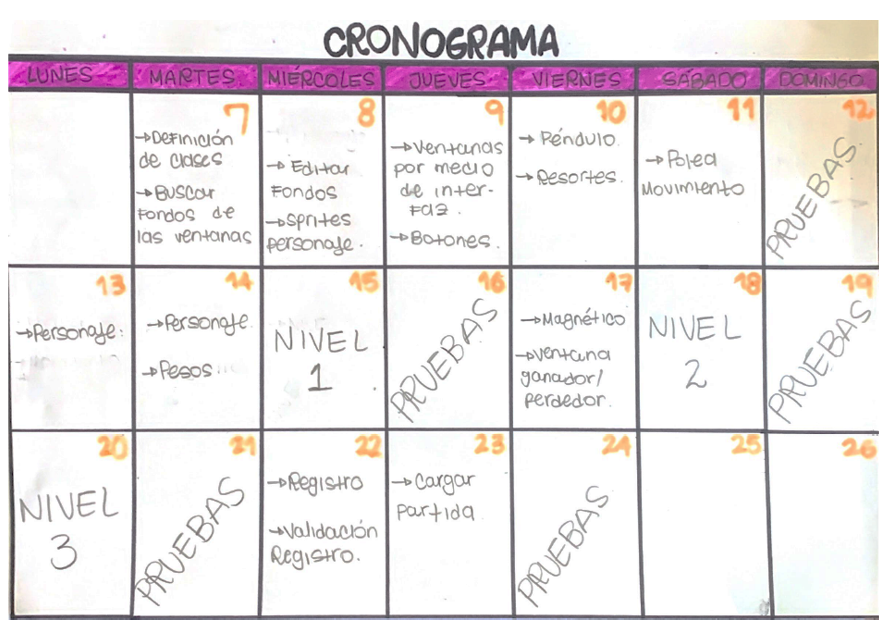 CRONOGRAMA
LUNES MARTES. MIÉRCOLES JUEVES VIERNES SÁBADO DOMINGO
7
→Definición
de clases
→Buscar
Fondos de
las ventanas
8
→ Editar
Fondos
→Sprites
personaje.
9
→Ventanas
por medio
de inter-
faz.
→Botones.
10
→ Péndulo.
→Resortes.
11
→Polea
Movimiento
12
PRUEBAS.
13
→Personaje:
14
→Personaje.
→Pesos
15
NIVEL
1
16
PRUEBAS
17
→Magnético
→Ventana
ganador/
perdedor.
18
NIVEL
2
19
PRUEBAS
20
NIVEL
3
21
PRUEBAS
22
→Registro
→Validación
Registro.
23
→Cargar
Partida
24
PRUEBAS
25
26